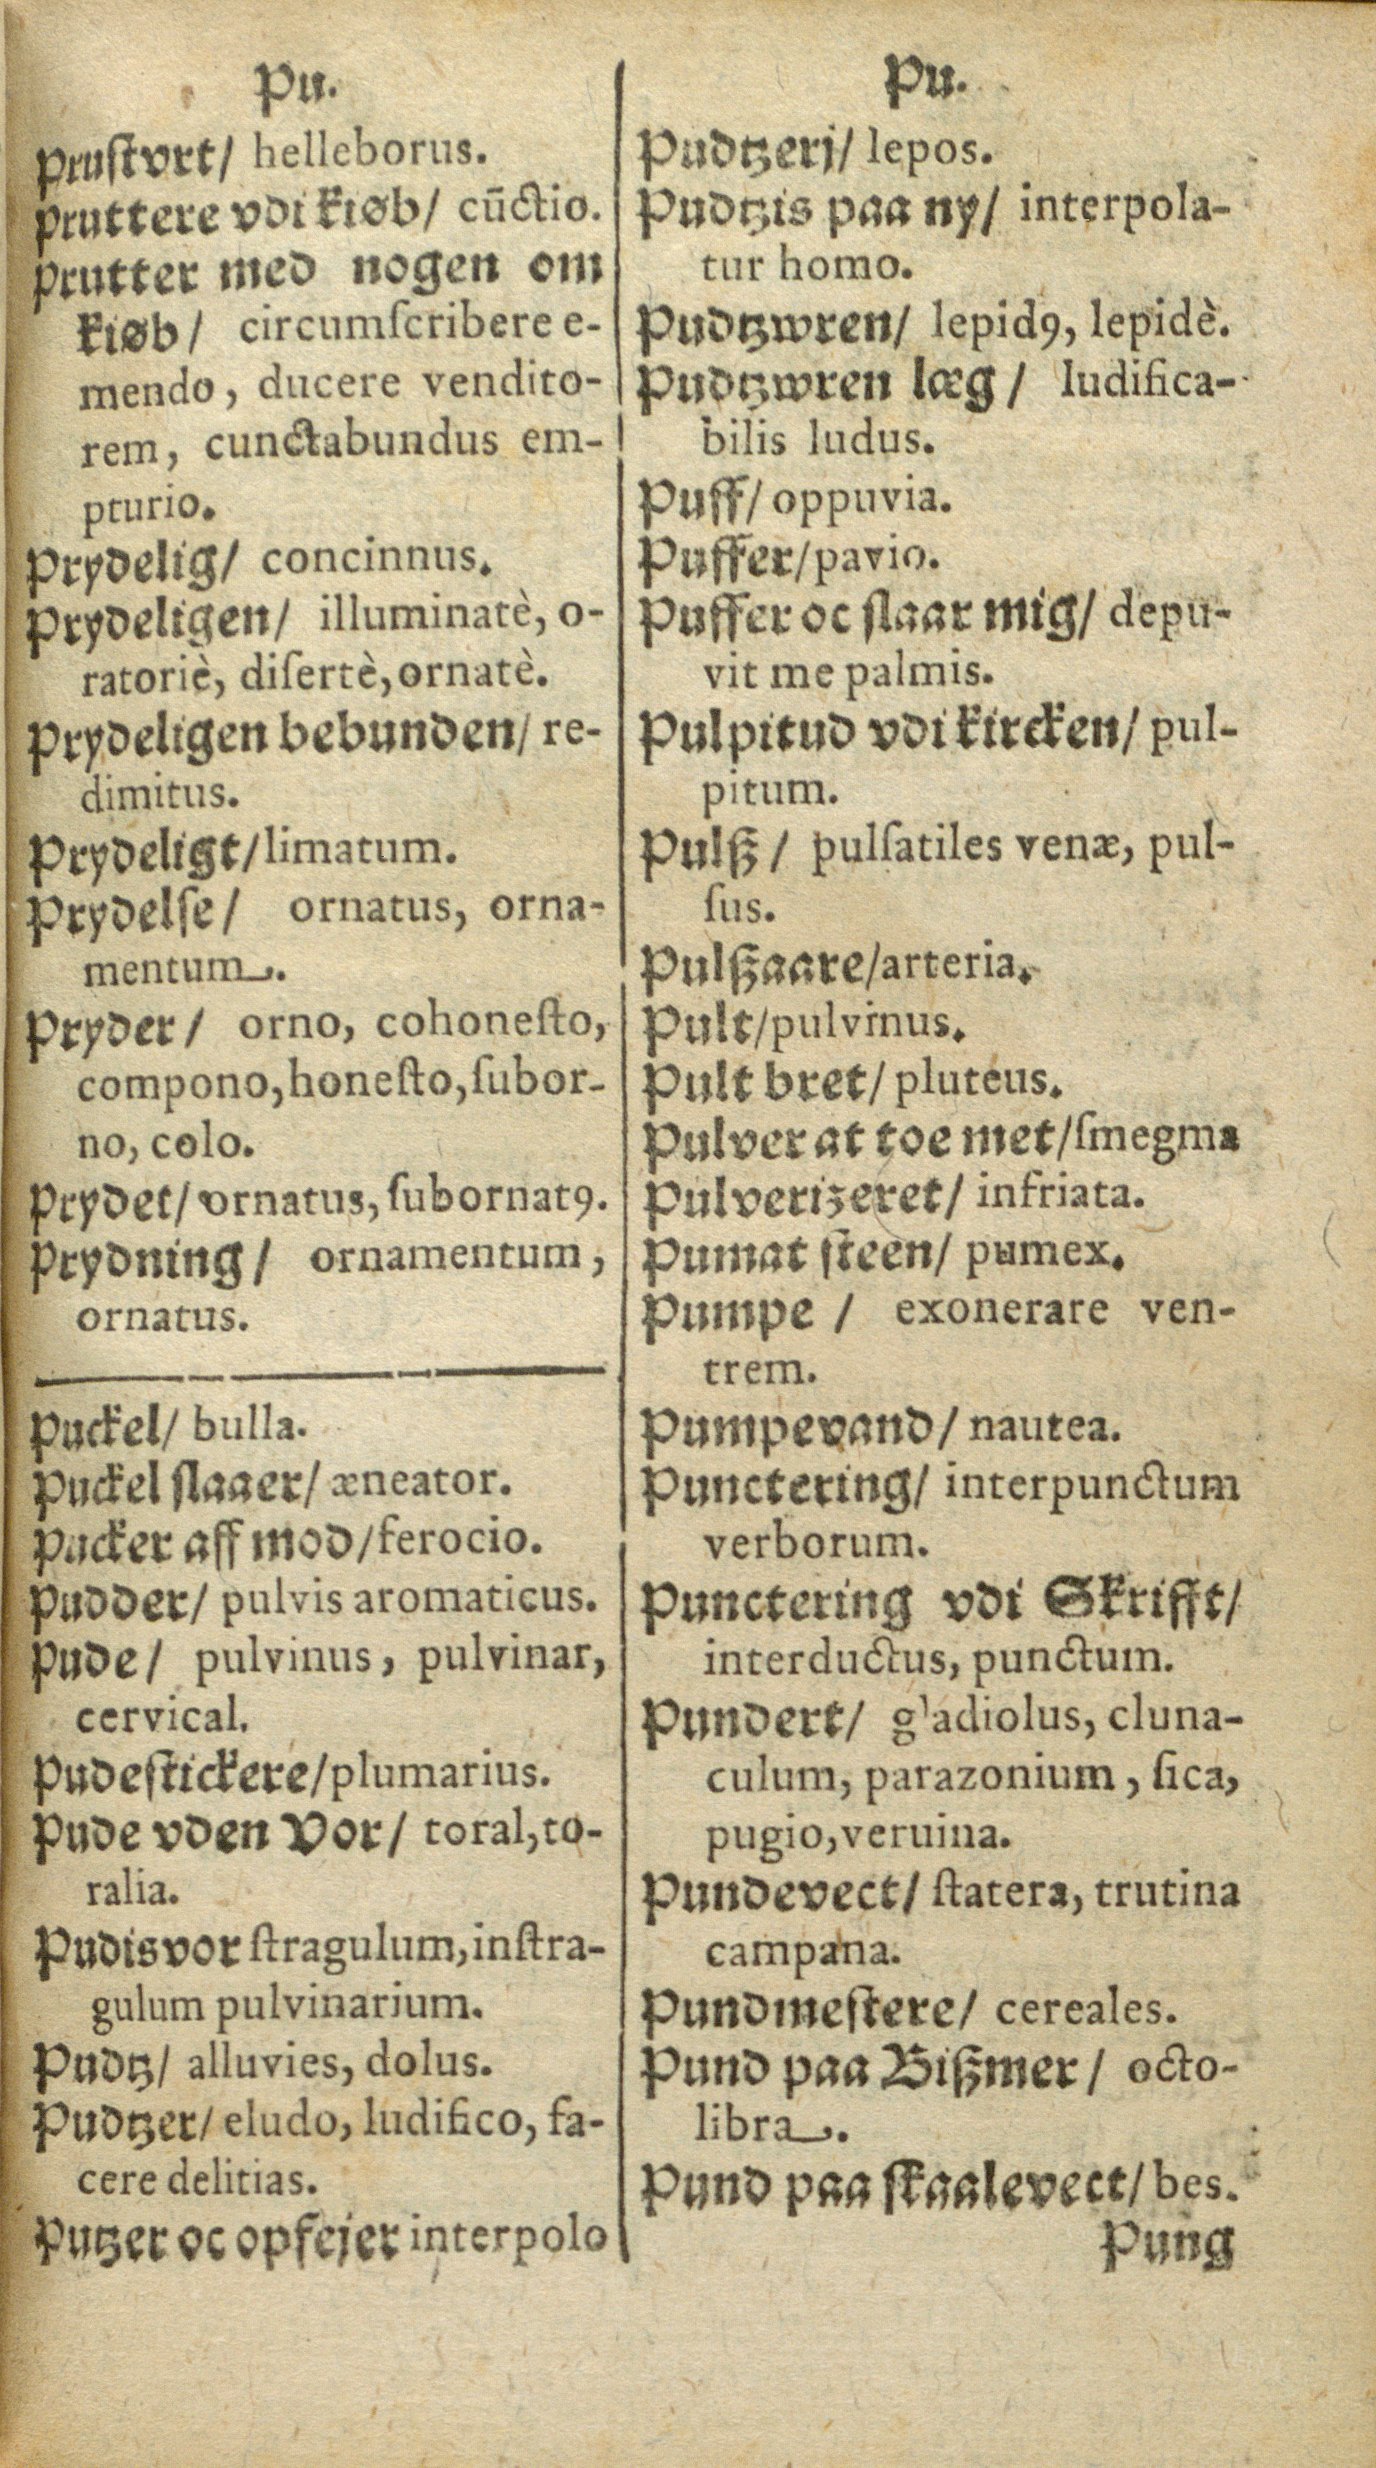 Pu.
Prustvrt/ helleborus.
Pruttere vdi kiøb/ cūctio.
Prutter med nogen om
kiøb/ circumſcribere e-
mendo, ducere vendito-
rem, cunctabundus em-
pturio.
Prydelig/ concinnus.
Prydeligen/ illuminatè, o-
ratoriè, diſertè, ornatè.
Prydeligen bebunden/ re-
dimitus.
Prydeligt/ limatum.
Prydelſe/ ornatus, orna-
mentum.
Pryder/ orno, cohoneſto,
compono, honeſto, ſubor-
no, colo.
Prydet/ ornatus, ſubornatꝰ.
Prydning/ ornamentum,
ornatus.
Puckel/ bulla.
Puckel ſlaaer/ æneator.
Pucker aff mod/ ferocio.
Pudder/ pulvis aromaticus.
Pude/ pulvinus, pulvinar,
cervical.
Pudeſtickere/ plumarius.
Pude vden Vor/ toral, to-
ralia.
Pudis vor ſtragulum, inſtra-
gulum pulvinarium.
Pudtz/ alluvies, dolus.
Pudtzer/ eludo, ludifico, fa-
cere delitias.
Putzer oc opfejer interpolo
Pu.
Pudtzerj/ lepos.
Pudtzis paa ny/ interpola-
tur homo.
Pudtzwren/ lepidꝰ, lepidè.
Pudtzwren læg/ ludifica-
bilis ludus.
Puff/ oppuvia.
Puffer/ pavio.
Puffer oc ſlaar mig/ depu-
vit me palmis.
Pulpitud vdi kircken/ pul-
pitum.
Pulß/ pulſatiles venæ, pul-
ſus.
Pulßaare/ arteria.
Pult/ pulvinus.
Pult bret/ pluteus.
Pulver at toe met/ ſmegma
Pulverizeret/ infriata.
Pumat ſteen/ pumex.
Pumpe/ exonerare ven-
trem.
Pumpevand/ nautea.
Punctering/ interpunctum
verborum.
Punctering vdi Skrifft/
interductus, punctum.
Pundert/ gladiolus, cluna-
culum, parazonium, ſica,
pugio, veruina.
Pundevect/ ſtatera, trutina
campana.
Pundmeſtere/ cereales.
Pund paa Bißmer/ octo-
libra.
Pund paa ſkaalevect/ bes.
Pung